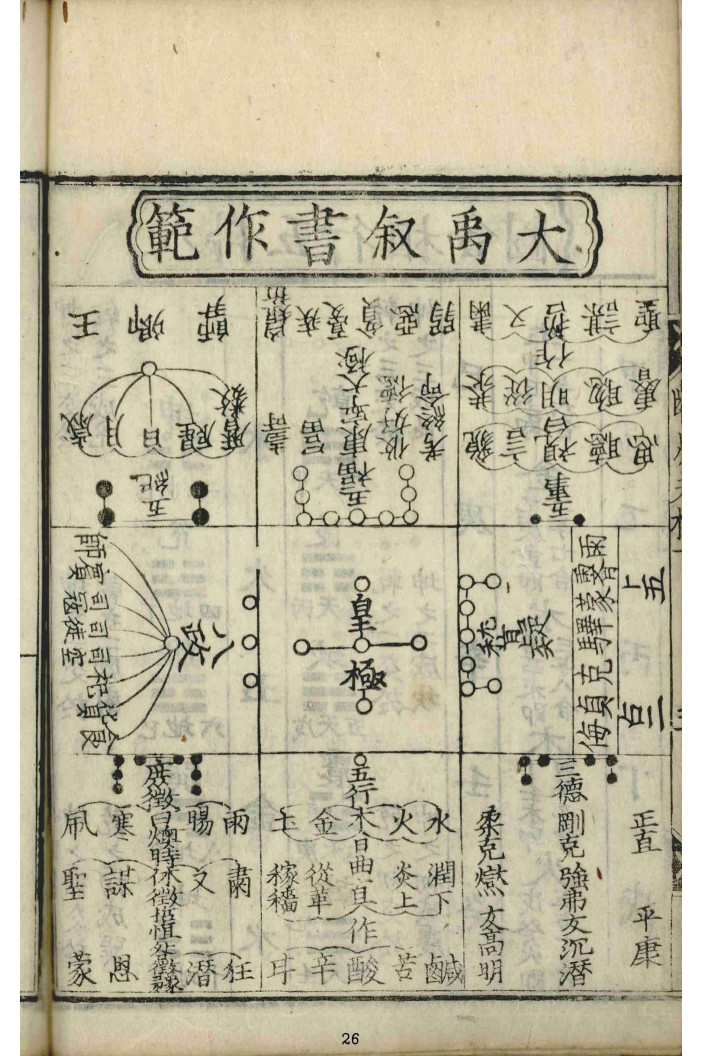 大禹叙書作範
五事
貌言視聽思
恭從明聰睿
肅乂哲謀聖
五福
壽
富
康寧
攸好德
考終命
六極
疾
憂
貧
惡
弱
五紀
歲月日星
曆數
王
卿
師
八政
食貨祀
司空
司徒
司冠
賓
師
皇極
稽疑
雨霽蒙驛克貞悔
卜五
占二
庶徵
雨暘燠寒風
曰時
休徵
肅乂
謀聖
狂
蒙
五行
水火木金土
潤下
炎上
曲直
從革
稼穡
作
鹹苦酸辛
三德
正直
平康
剛克
強弗友
沉潛
柔克
燮友
高明
26